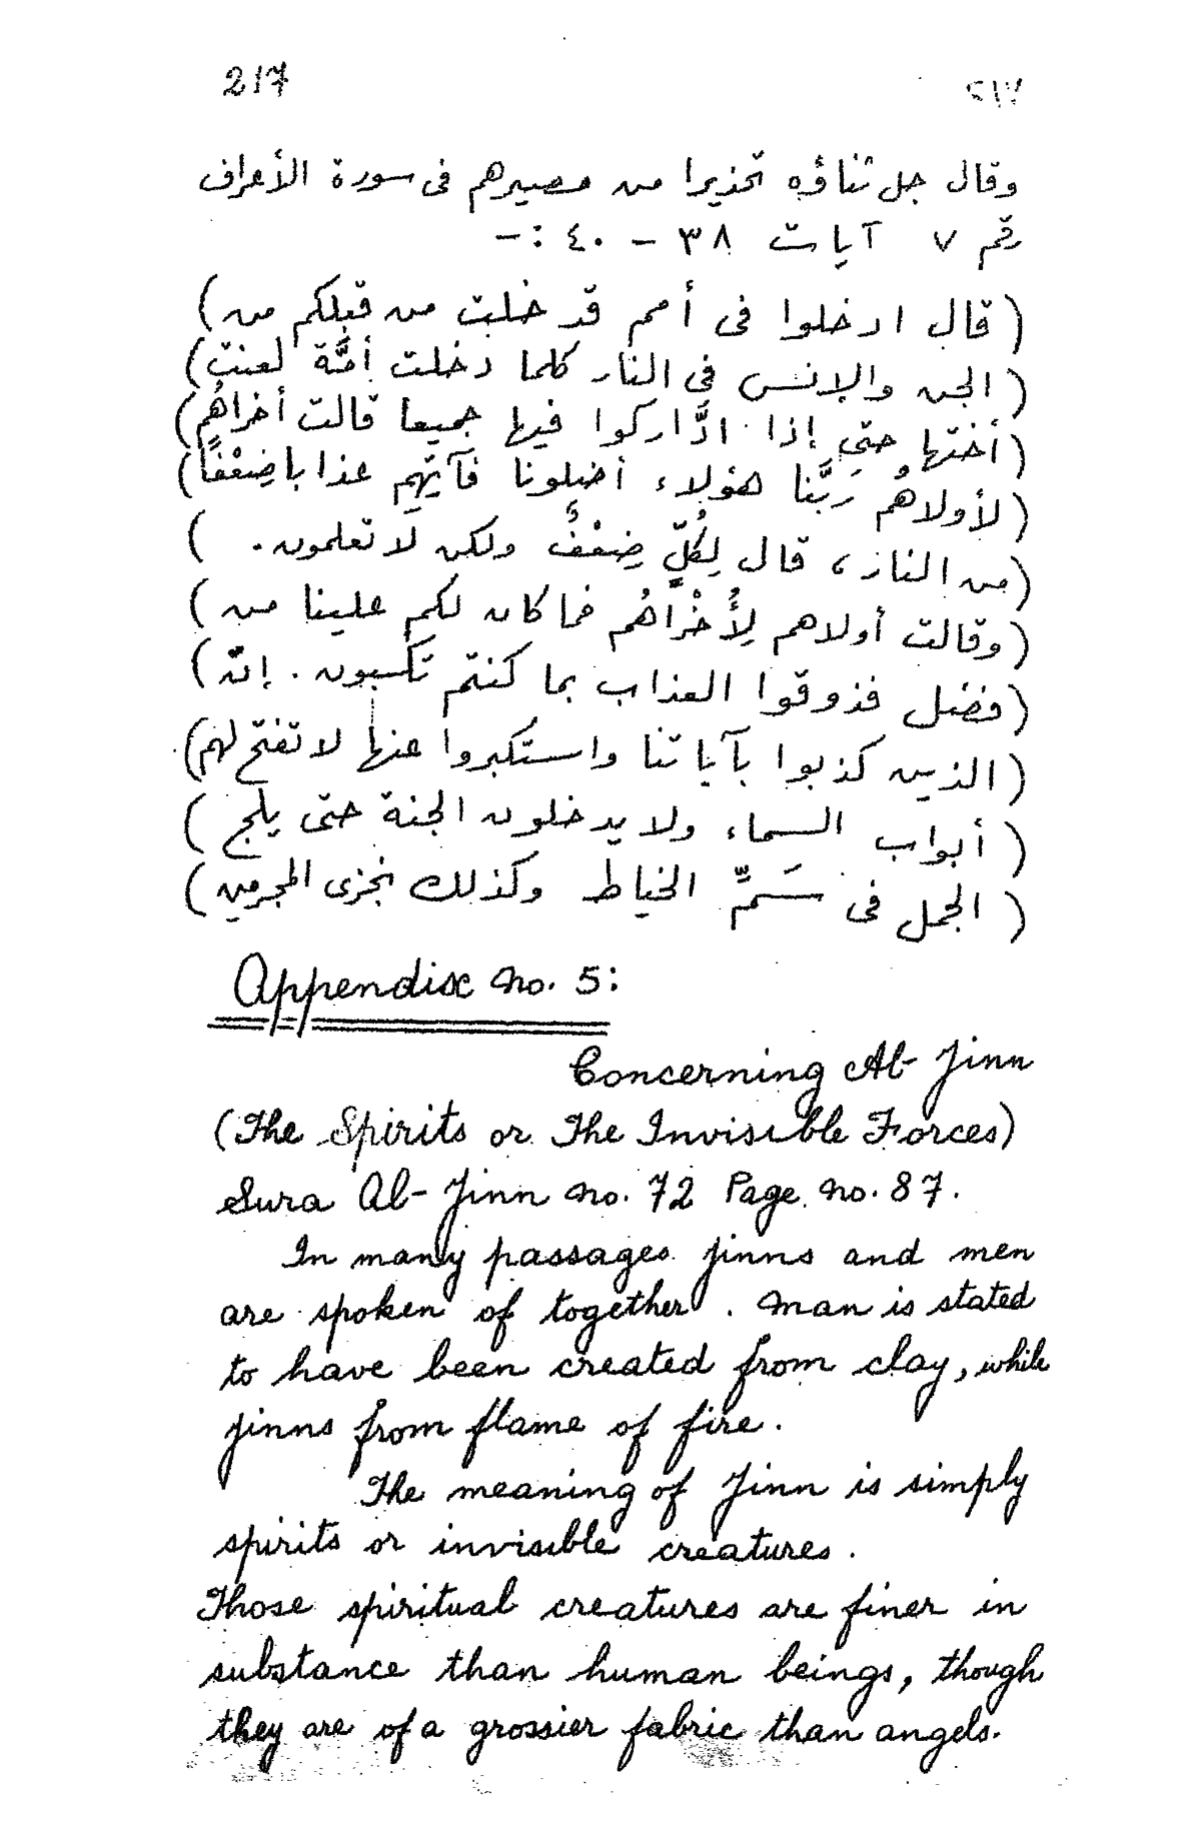 217 ٢١٧
وقال جل ثناؤه تحذيرا من مصيرهم فى سورة الأعراف
رقم ٧ آيات ٣٨ - ٤٠ :-
( قال ادخلوا فى أمم قد خلت من قبلكم من )
( الجن والإنس فى النار كلما دخلت أمَّة لعنت )
( أختها حتى إذا ادَّاركوا فيها جميعا قالت أخراهُم )
( لأولاهُم رَبَّنا هؤلاء أضلونا فآتهم عذابا ضِعْفًا )
( من النار ، قال لِكُلٍّ ضِعْفٌ ولكن لا تعلمون . )
( وقالت أولاهم لِأُخْرَاهُم فما كان لكم علينا من )
( فضل فذوقوا العذاب بما كنتم تكسبون . إنّ )
( الذين كذبوا بآياتنا واستكبروا عنها لا تفتح لهم )
( أبواب السماء ولا يدخلون الجنة حتى يلج )
( الجمل فى سَمِّ الخياط وكذلك نجزى المجرمين )
Appendix no. 5:
Concerning Al-Jinn
(The Spirits or The Invisible Forces)
Sura Al-Jinn no. 72 Page no. 87.
In many passages jinns and men
are spoken of together. Man is stated
to have been created from clay, while
jinns from flame of fire.
The meaning of Jinn is simply
spirits or invisible creatures.
Those spiritual creatures are finer in
substance than human beings, though
they are of a grossier fabric than angels.